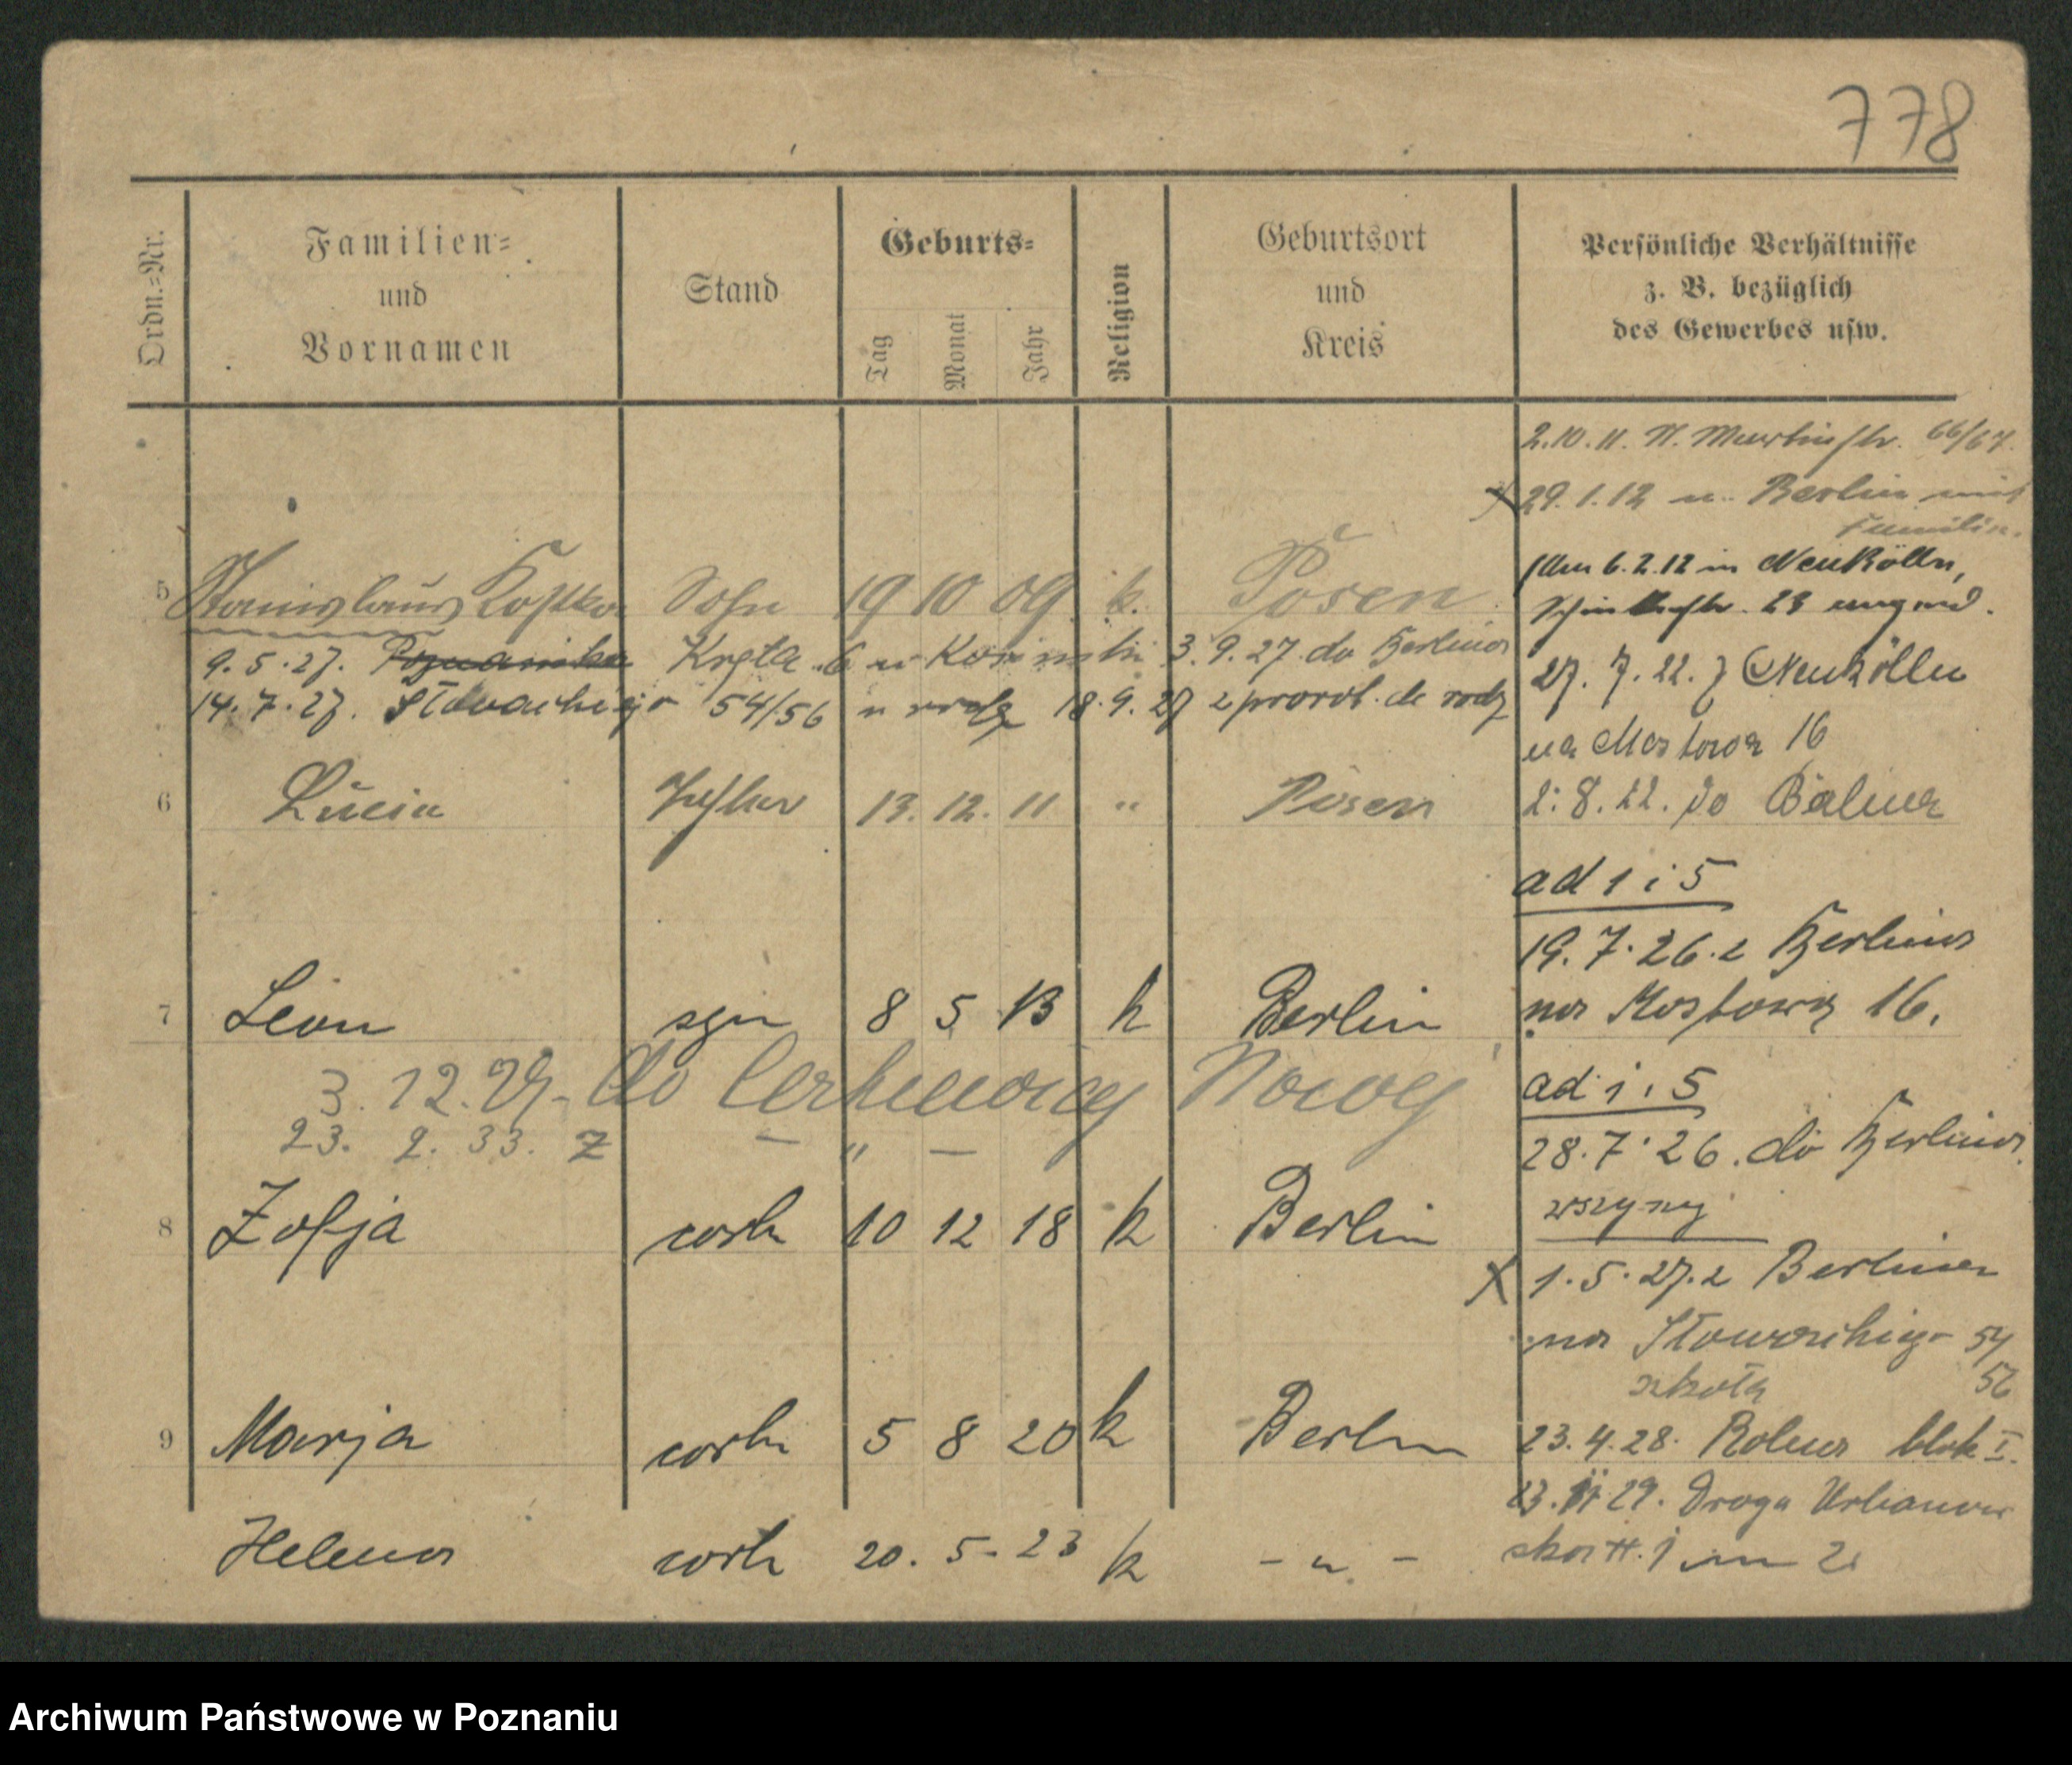 778
Ordn.=Nr.
Familien=
und
Vornamen
Stand
Geburts=
Tag
Monat
Jahr
Religion
Geburtsort
und
Kreis
Persönliche Verhältnisse
z. B. bezüglich
des Gewerbes usw.
2.10.11. 66/67.
29.1.12 n. Berlin mit
Familie.
5 Stanislaus Kostka Sohn 19 10 09 k. Posen
Am 6.2.12 in Neukölln,
23
9.5.27. Kręta 6 3.9.27 do Berlina
14.7.27. Słowackiego 54/56 18.9.27 z powrot. do rodz
27.7.22. z Neukölln
na Mostowa 16
6 Lucia Tochter 13. 12. 11 " Posen
2.8.22. do
ad 1 i 5
19.7.26. z Berlina
na Mostowa 16.
7 Leon syn 8 5 13 k Berlin
3.12.29. do Nowej
23. 2. 33. z — " —
ad 1 i 5
28.7.26. do Berlina
8 Zofja corka 10 12 18 k Berlin
X 1.5.27. z Berlina
na Słowackiego 54
56
9 Marja corka 5 8 20 k Berlin
23.4.28. blok I.
29. Droga Urbanow
ska
Helena corka 20. 5. 23 k - " -
Archiwum Państwowe w Poznaniu